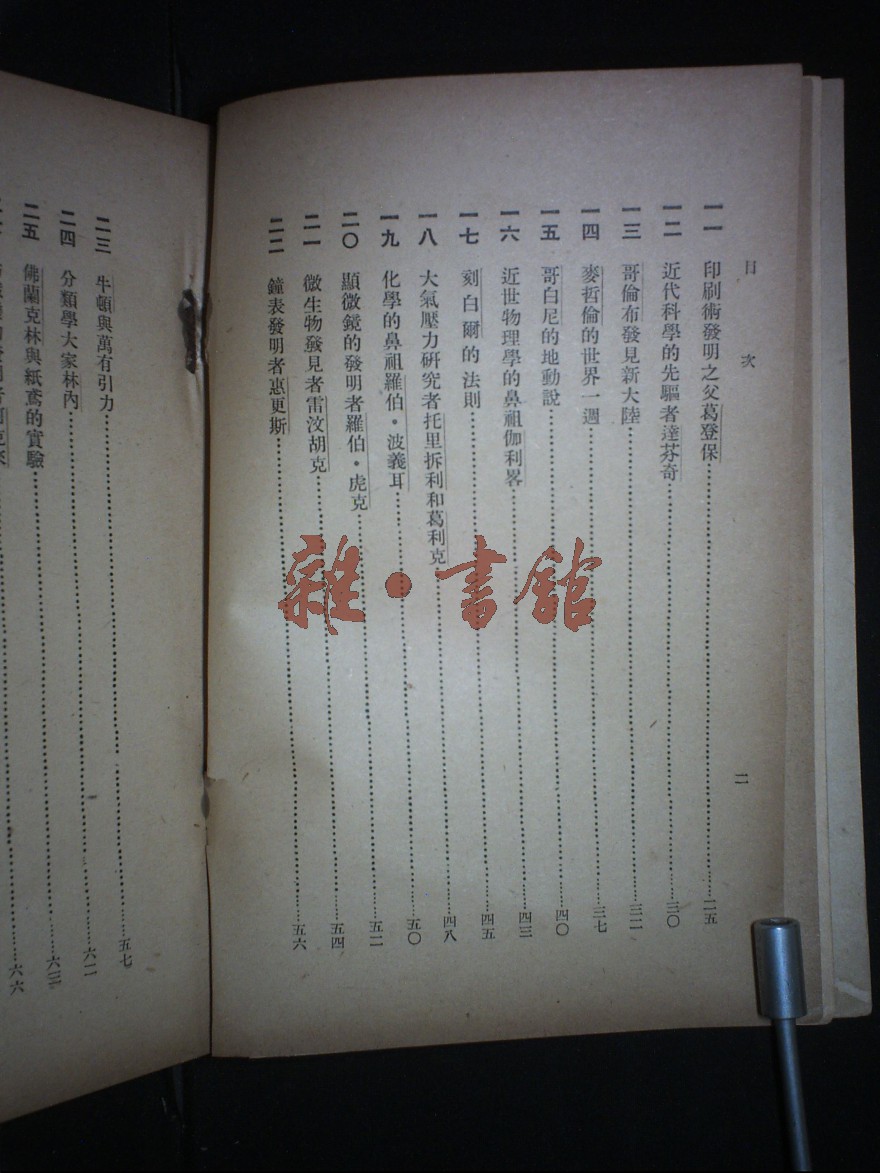 目次
二
一一 印刷術發明之父葛登保 二五
一二 近代科學的先驅者達芬奇 三〇
一三 哥倫布發見新大陸 三二
一四 麥哲倫的世界一週 三七
一五 哥白尼的地動說 四〇
一六 近世物理學的鼻祖伽利畧 四三
一七 刻白爾的法則 四五
一八 大氣壓力研究者托里拆利和葛利克 四八
一九 化學的鼻祖羅伯·波義耳 五〇
二〇 顯微鏡的發明者羅伯·虎克 五二
二一 微生物發見者雷汶胡克 五四
二二 鐘表發明者惠更斯 五六
二三 牛頓與萬有引力 五七
二四 分類學大家林內 六二
二五 佛蘭克林與紙鳶的實驗 六三
六六
雜·書館